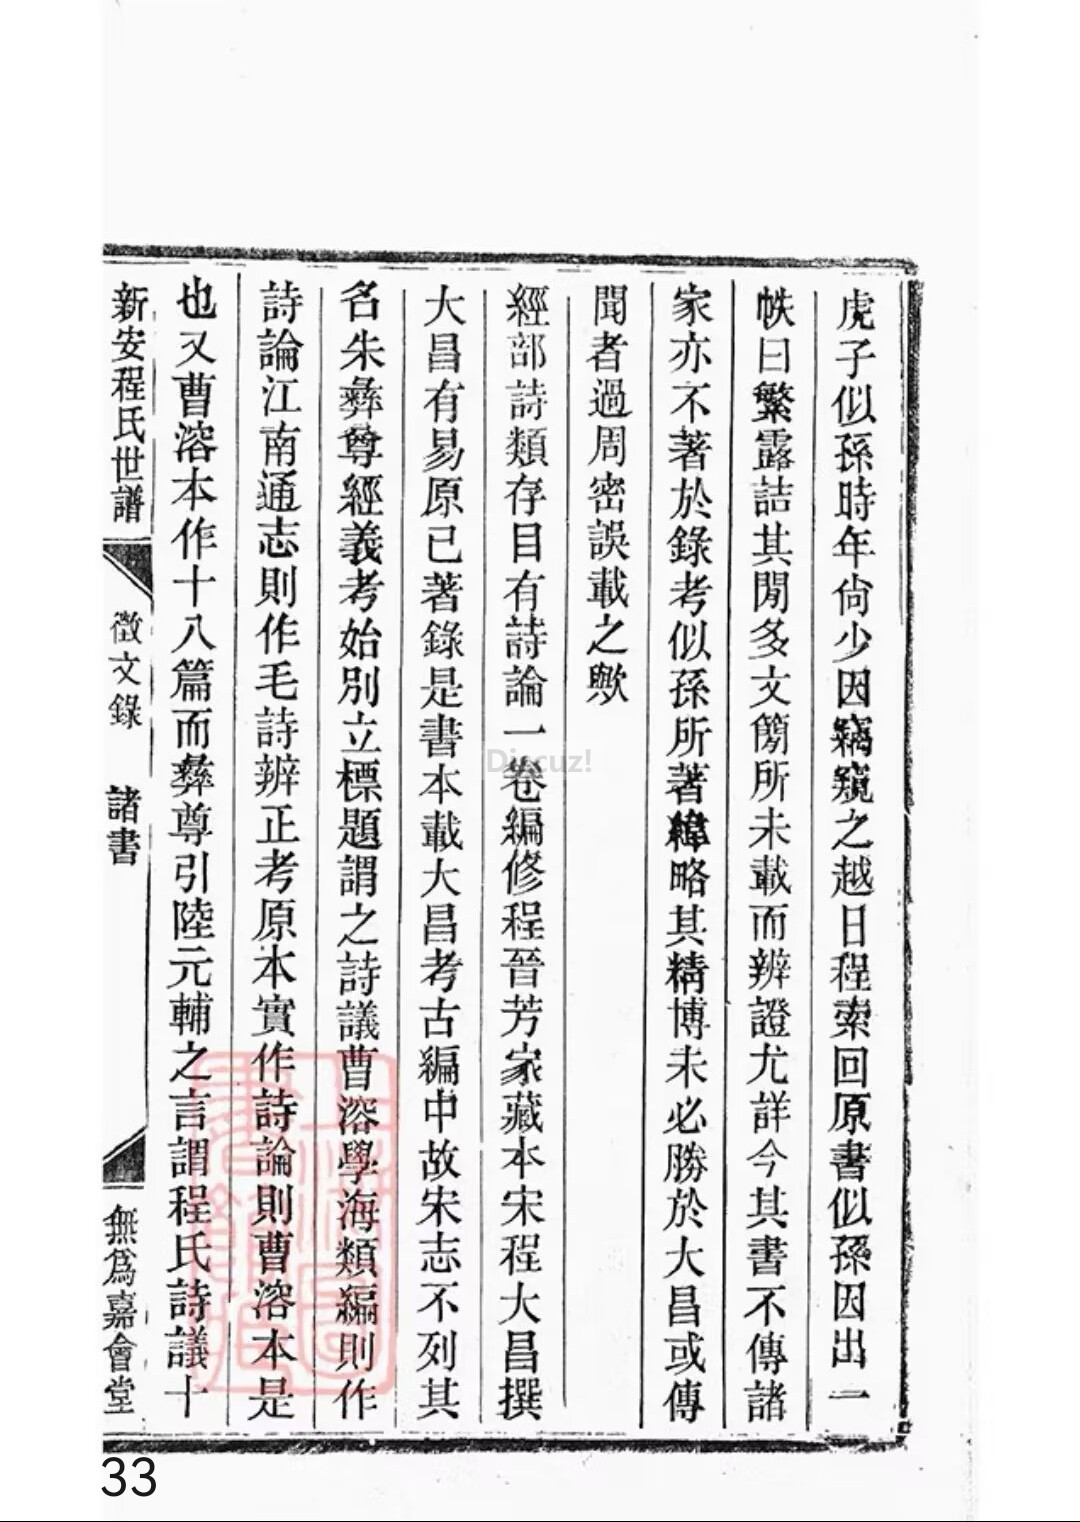 虎子似孫時年尙少因竊窺之越日程索回原書似孫因出一
帙曰繁露詰其閒多文簡所未載而辨證尤詳今其書不傳諸
家亦不著於錄考似孫所著緯略其精博未必勝於大昌或傳
聞者過周密誤載之歟
經部詩類存目有詩論一卷編修程晉芳家藏本宋程大昌撰
大昌有易原已著錄是書本載大昌考古編中故宋志不列其
名朱彝尊經義考始別立標題謂之詩議曹溶學海類編則作
詩論江南通志則作毛詩辨正考原本實作詩論則曹溶本是
也又曹溶本作十八篇而彝尊引陸元輔之言謂程氏詩議十
新安程氏世譜 徵文錄 諸書 無爲嘉會堂
上海圖書館藏
Discuz!
33